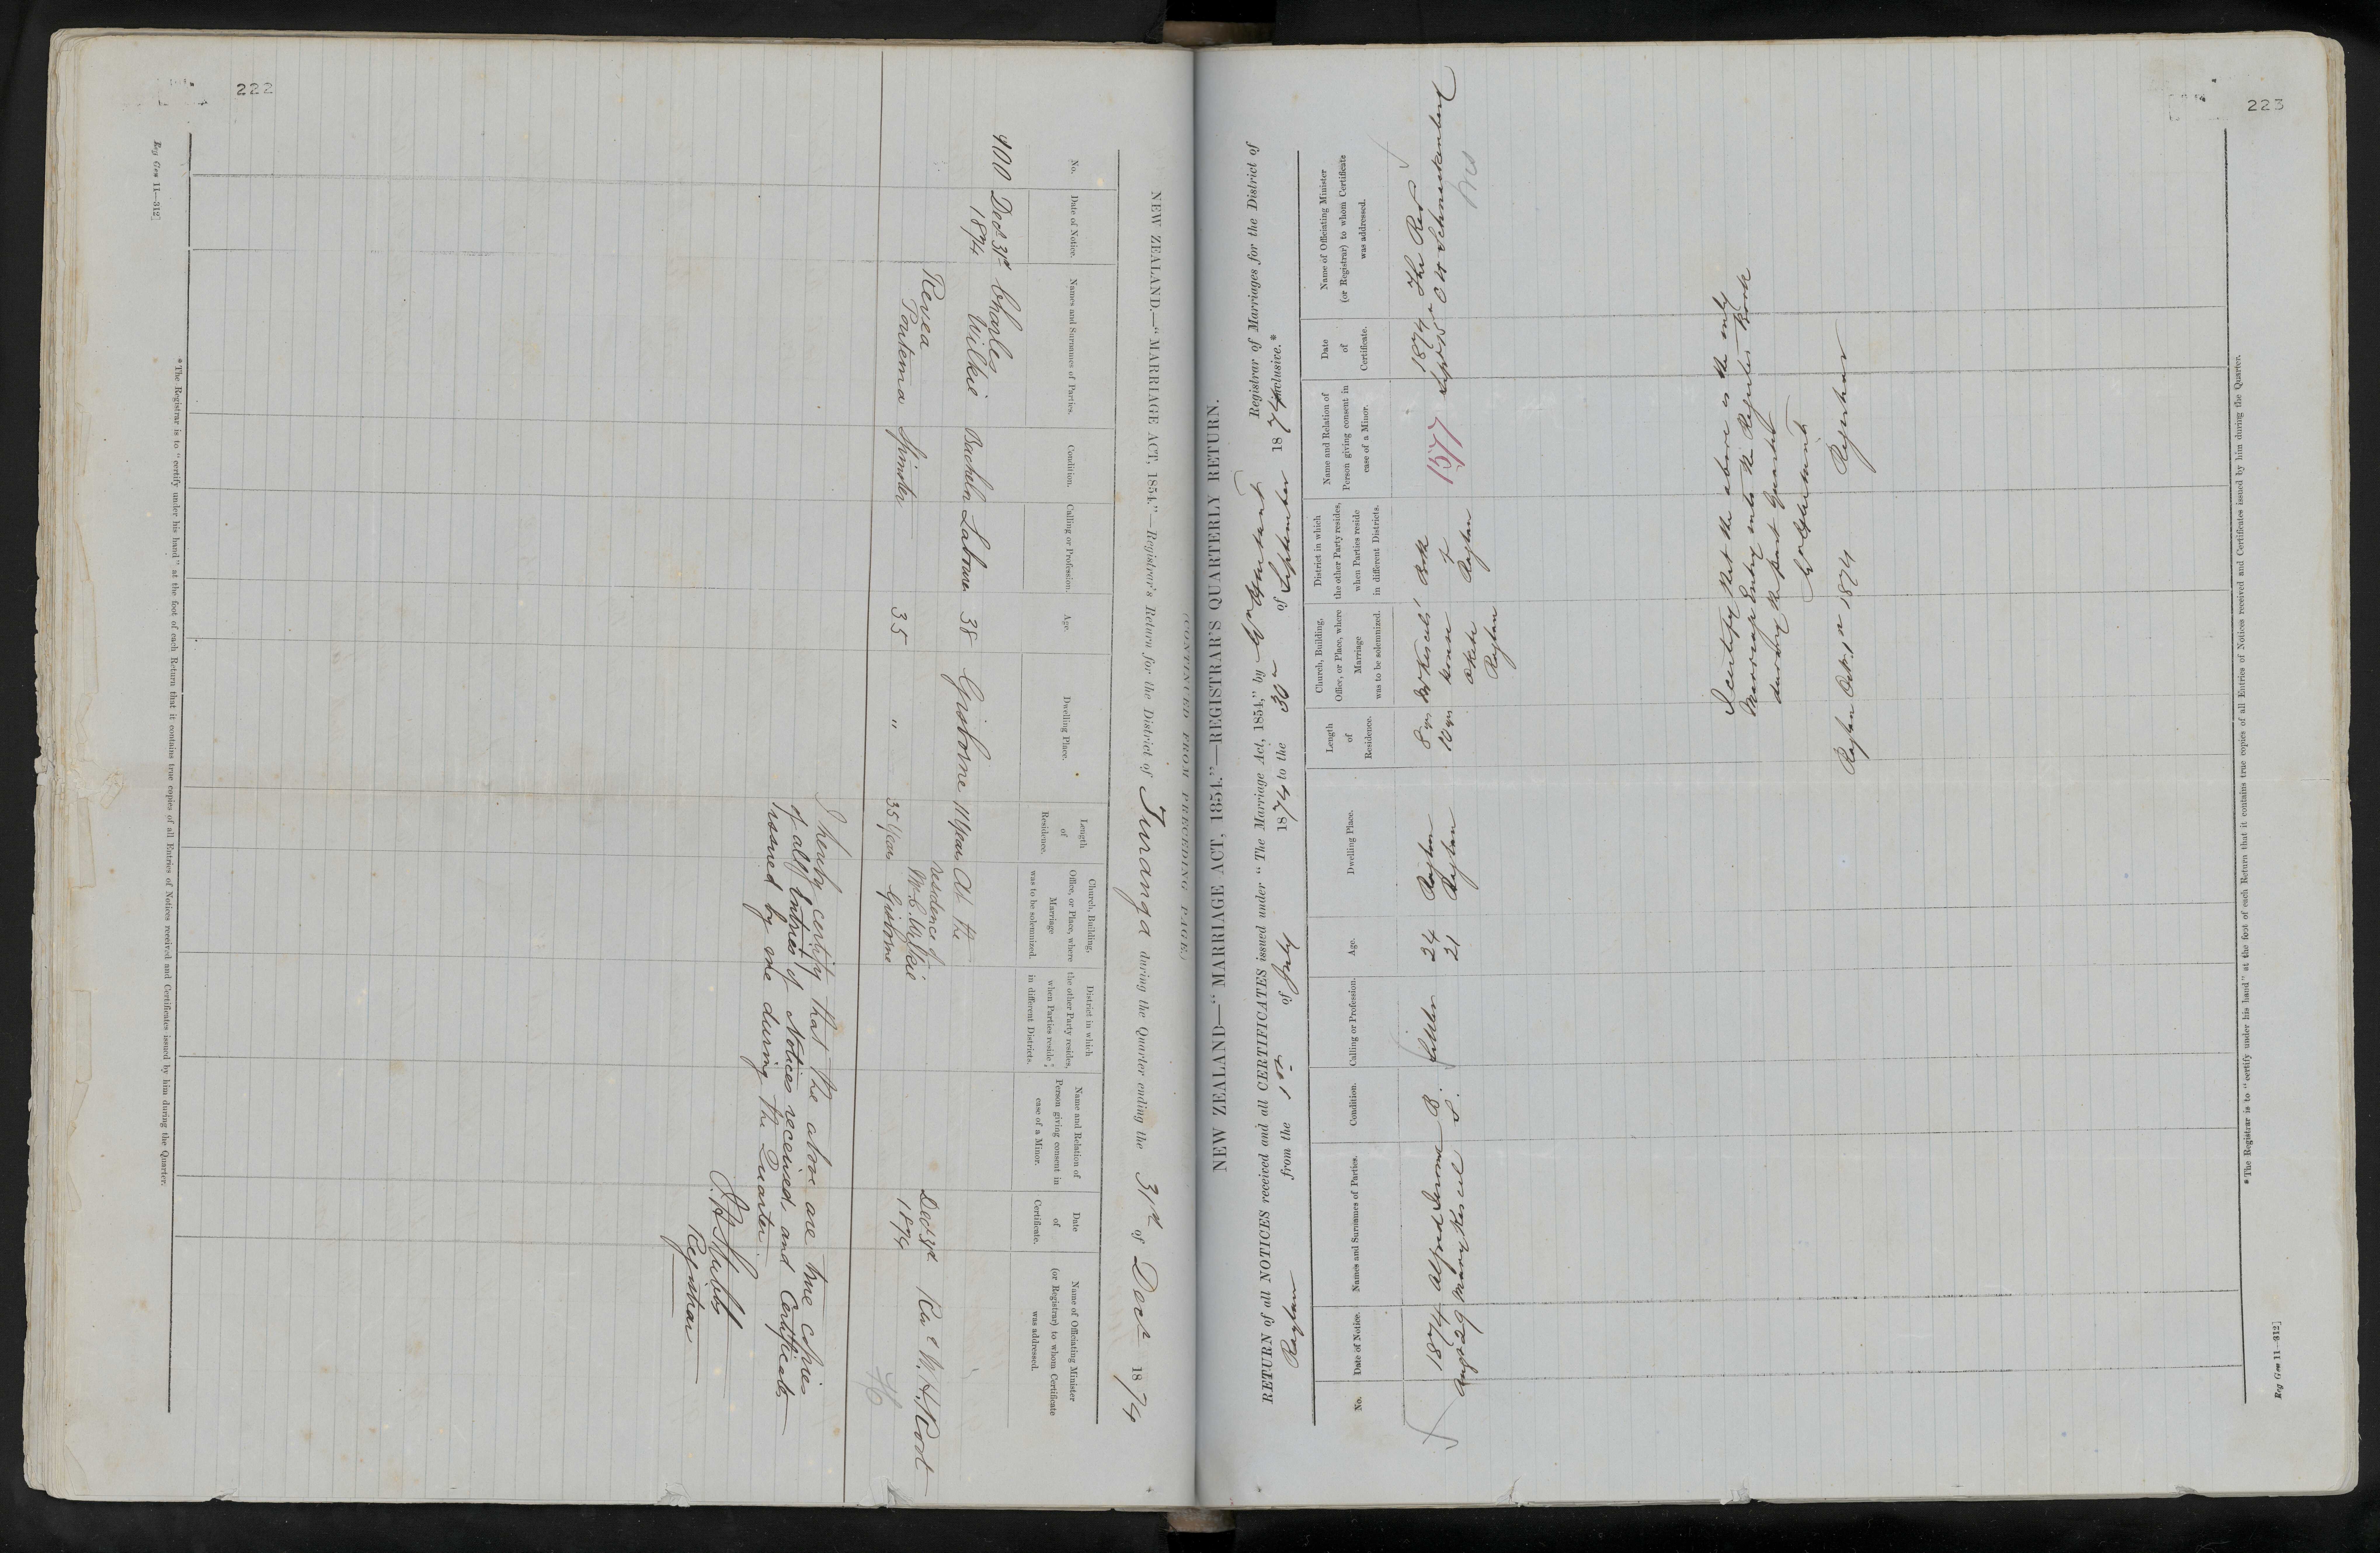 222
(CONTINUED FROM PRECEDING PAGE)
NEW ZEALAND.—"MARRIAGE ACT, 1854."—Registrar's Return for the District of Turanga during the Quarter ending the 31st of Decr 1874
No.
Date of Notice.
Names and Surnames of Parties.
Condition.
Calling or Profession.
Age.
Dwelling Place.
Length
of
Residence.
Church, Building,
Office, or Place, where
Marriage
was to be solemnized.
District in which
the other Party resides,
when Parties reside
in different Districts.
Name and Relation of
Person giving consent in
case of a Minor.
Date
of
Certificate.
Name of Officiating Minister
(or Registrar) to whom Certificate
was addressed.
400 Decr 31st Charles
1874 Wilkie Bachelor Labourer 38 Gisborne 11 Years At the
residence of
Mr C. Wilkie
Gisborne
Rewea
Poutema Spinster 35 " 35 Years
Decr 31st
1874
Revd W. H. Root
I hereby certify that the above are true copies
of all Entries of Notices received and Certificates
issued by me during the Quarter
Registrar
*The Registrar is to "certify under his hand" at the foot of each Return that it contains true copies of all Entries of Notices received and Certificates issued by him during the Quarter.
Reg Gen 11—312]
223
NEW ZEALAND—"MARRIAGE ACT, 1854."—REGISTRAR'S QUARTERLY RETURN.
RETURN of all NOTICES received and all CERTIFICATES issued under "The Marriage Act, 1854," by Registrar of Marriages for the District of
Raglan from the 1st of July 1874 to the 30th of September 1874 inclusive.*
No.
Date of Notice.
Names and Surnames of Parties.
Condition.
Calling or Profession.
Age.
Dwelling Place.
Length
of
Residence.
Church, Building,
Office, or Place, where
Marriage
was to be solemnized.
District in which
the other Party resides,
when Parties reside
in different Districts.
Name and Relation of
Person giving consent in
case of a Minor.
Date
of
Certificate.
Name of Officiating Minister
(or Registrar) to whom Certificate
was addressed.
1874 Alfred B. Settler 24 Raglan 8 house Both 1874 The Rev
Augst 29 Mary S. 21 Raglan 10 of Raglan Raglan
1577
I certify that the above is the only
Marriage Entry into the Register Book
during the past Quarter
Registrar
Raglan Oct. 1st 1874
*The Registrar is to "certify under his hand" at the foot of each Return that it contains true copies of all Entries of Notices received and Certificates issued by him during the Quarter.
Reg Gen 11—312]